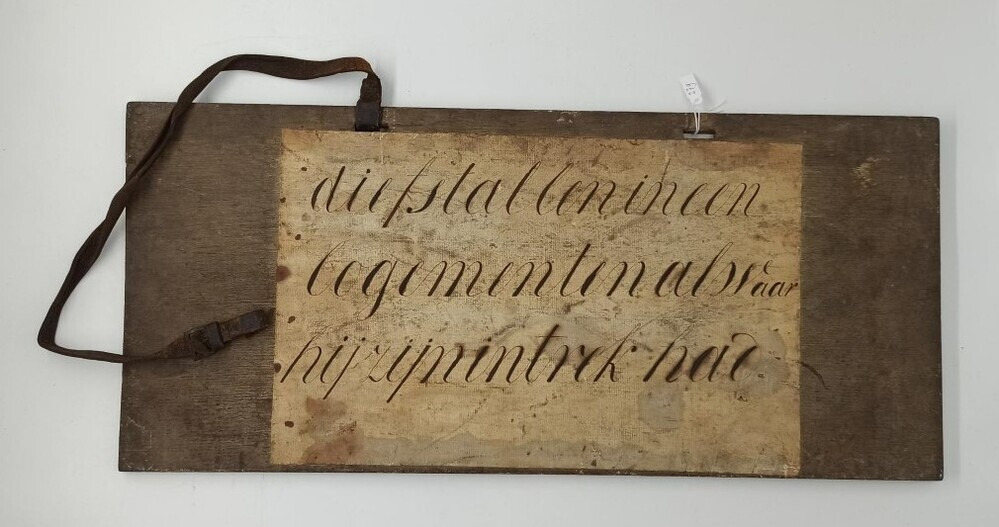 diefstallen in een
logementen alswaar
hij zijn intrek had